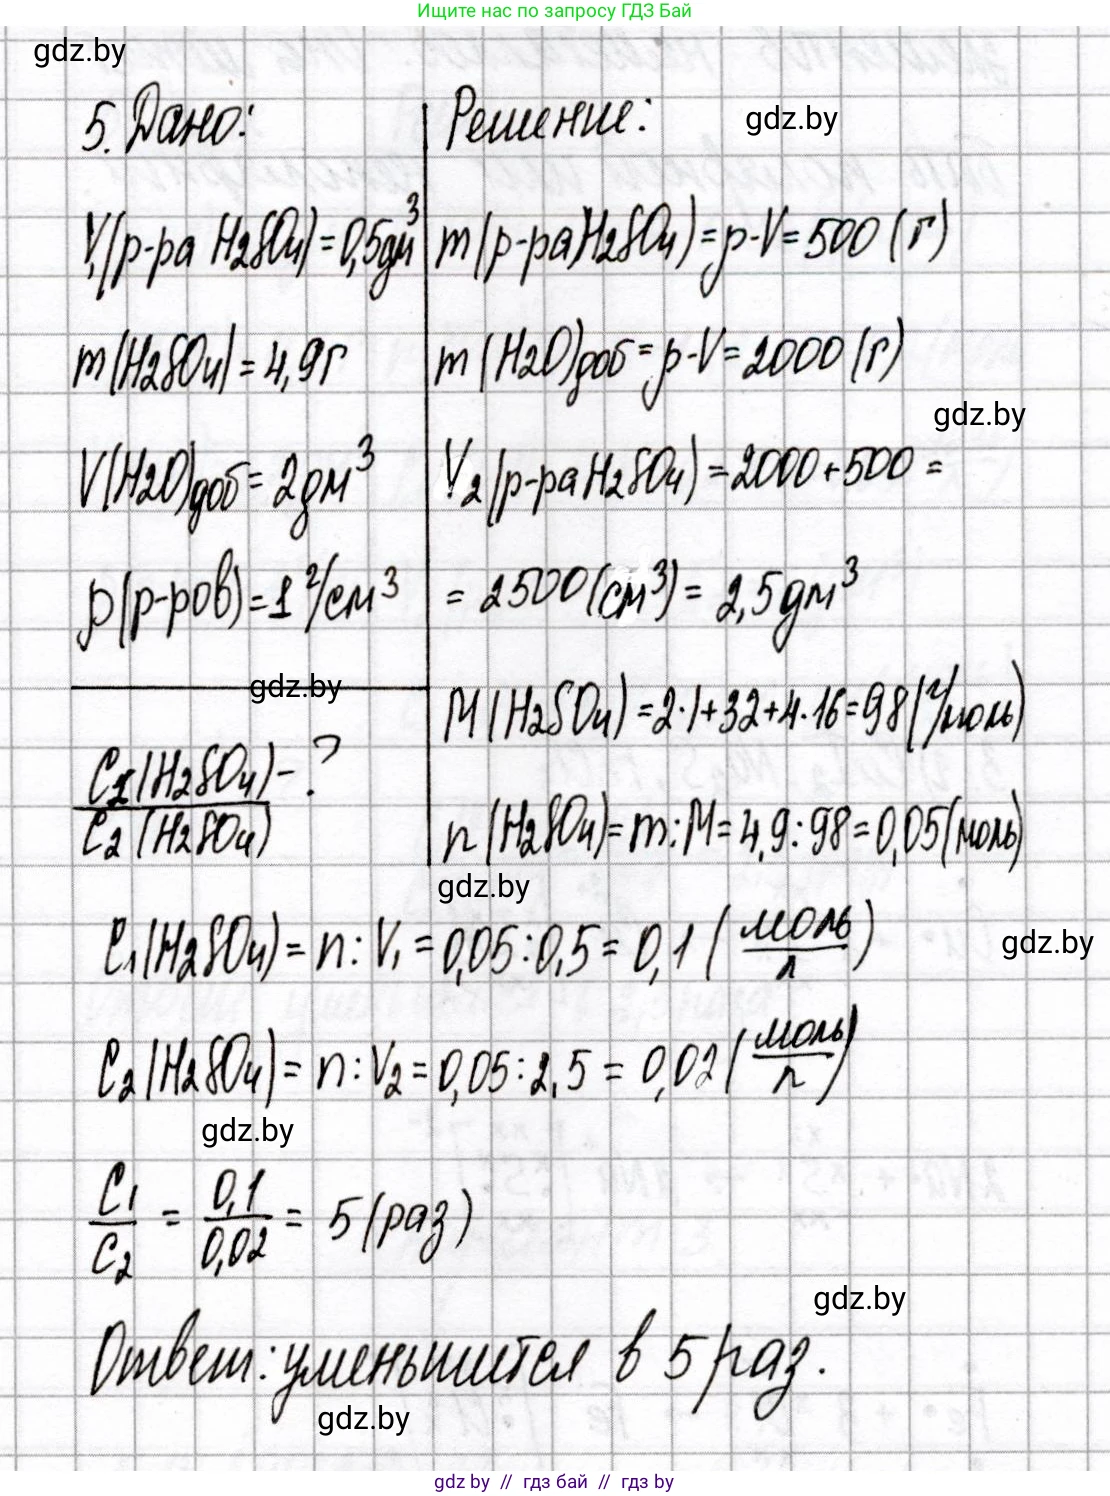 Ищите нас по запросу ГДЗ Бай
gdz.by
5. Дано:
V₁(р-ра H2SO4)=0,5дм³
m(H2SO4)=4,9г
V(H2O)доб=2дм³
ρ(р-ров)=1 г/см³
gdz.by
C1(H2SO4) - ?
C2(H2SO4)
Решение:
gdz.by
m(р-ра H2SO4)=ρ·V=500 (г)
m(H2O)доб=ρ·V=2000 (г)
gdz.by
V2(р-ра H2SO4)=2000+500=
=2500(см³)=2,5дм³
M(H2SO4)=2·1+32+4·16=98(г/моль)
n(H2SO4)=m:M=4,9:98=0,05(моль)
gdz.by
C1(H2SO4)=n:V1=0,05:0,5=0,1(моль/л)
gdz.by
C2(H2SO4)=n:V2=0,05:2,5=0,02(моль/л)
gdz.by
C1/C2=0,1/0,02=5(раз)
gdz.by
Ответ: уменьшится в 5 раз.
gdz.by
gdz by // гдз бай // гдз by